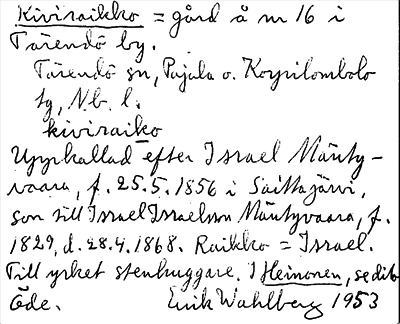 Kiviraikko = gård å nr 16 i
Tärendö by.
Tärendö sn, Pajala o. Korpilombolo
tg, Nb. l.
kiviraiko
Uppkallad efter Israel Mänty-
vaara, f. 25.5.1856 i Saittajärvi,
son till Israel Israelsson Mäntyvaara, f.
1829, d. 28.4.1868. Raikko = Israel.
Till yrket stenhuggare. I Heinonen, se d:o
Öde. Erik Wahlberg 1953